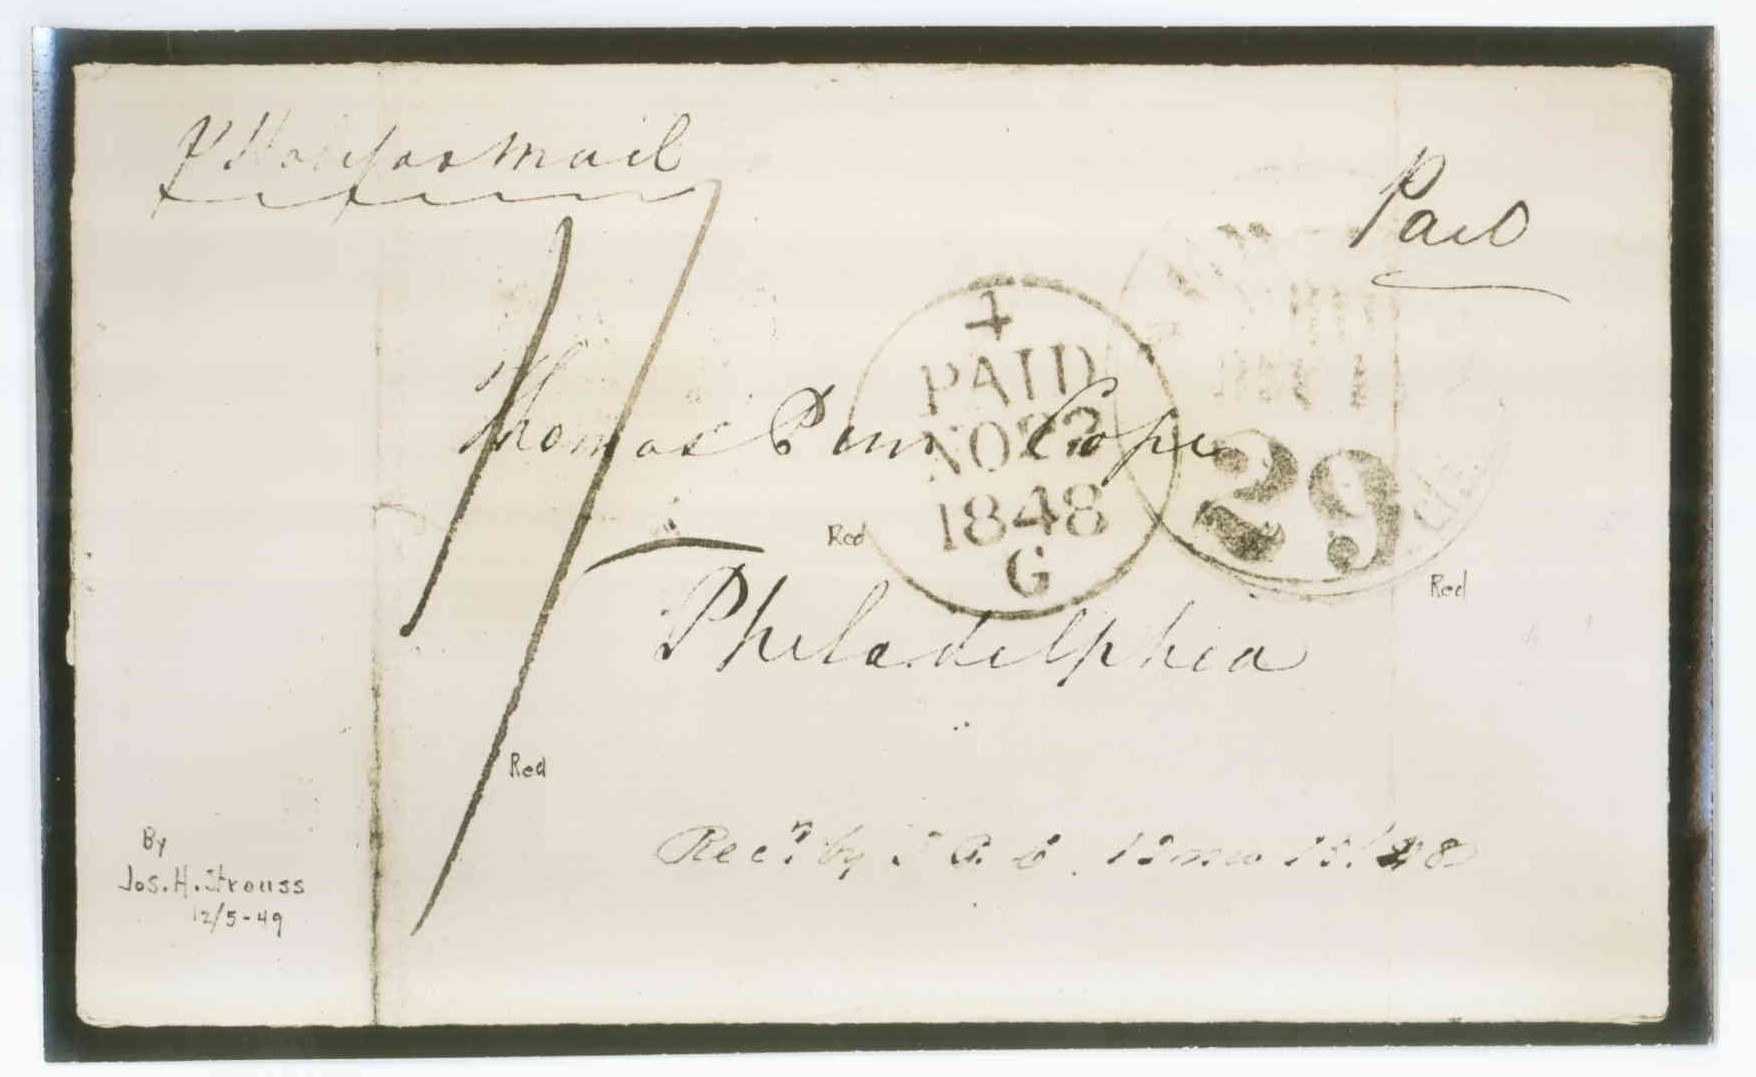 p Halifax Mail
Paid
1/
+
PAID
NO 22
1848
G
29
cts
Thomas Penn Cope
Philadelphia
Red
Red
Red
Rec.d by
12 mo 48
By
Jos. H. Strauss
12/5-49